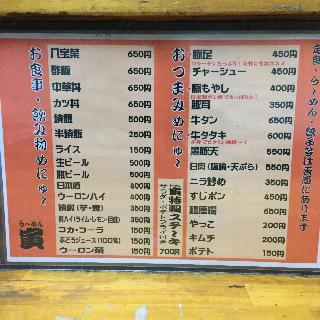 お食事・飲み物めにゅ〜
八宝菜 650円
酢豚 650円
中華丼 650円
カツ丼 650円
焼飯 550円
半焼飯 250円
ライス 150円
生ビール 500円
瓶ビール 500円
日本酒 400円
ウーロンハイ 400円
焼酎(芋・麦) 350円
酎ハイ(ライム・レモン・巨峰) 350円
コカ・コーラ 150円
ぶどうジュース(100%) 150円
ウーロン茶 150円
ら〜めん
寅
おつまみめにゅ〜
豚足 450円
コラーゲンたっぷり!女性にもおススメ
チャーシュー 450円
豚もやし 400円
豚耳 350円
牛タン 650円
牛タタキ 650円
黒豚天 550円
白肉(塩焼・天ぷら) 550円
ニラ炒め 350円
すじポン 450円
麺唐揚 550円
やっこ 200円
キムチ 200円
ポテト 150円
寅特製ステーキ
サラダ・ポテトフライ付き
700円
定食・ら〜めん・御飯等は裏面にあります